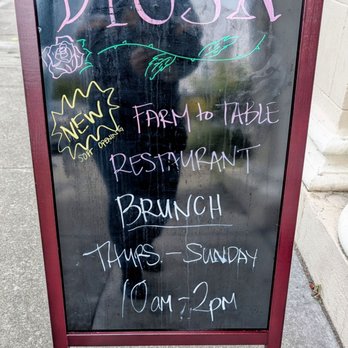 NEW
SOFT OPENING
FARM to TABLE
RESTAURANT
BRUNCH
THURS. - SUNDAY
10am - 2pm